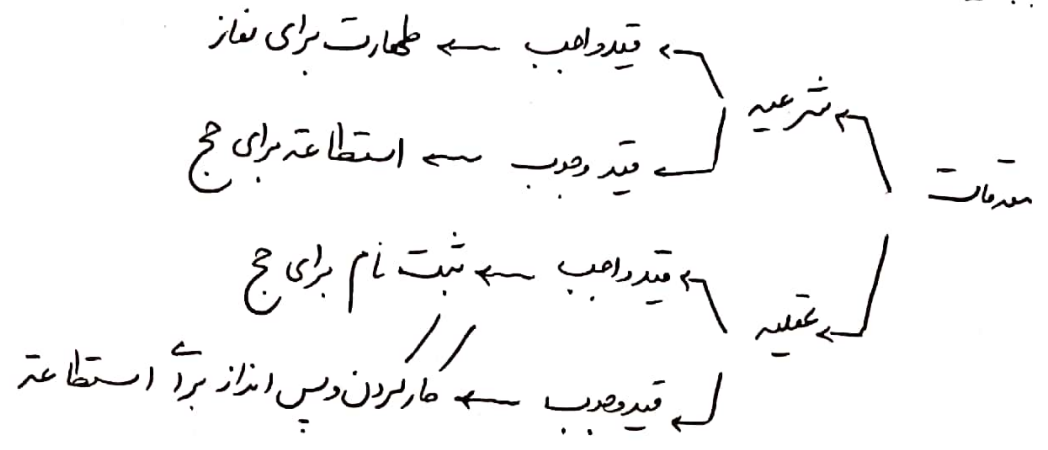 مقدمات
شرعیه
قید واجب ← طهارت برای نماز
قید وجوب ← استطاعة برای حج
عقلیه
قید واجب ← ثبت نام برای حج
قید وجوب ← کار کردن و پس انداز برای استطاعة